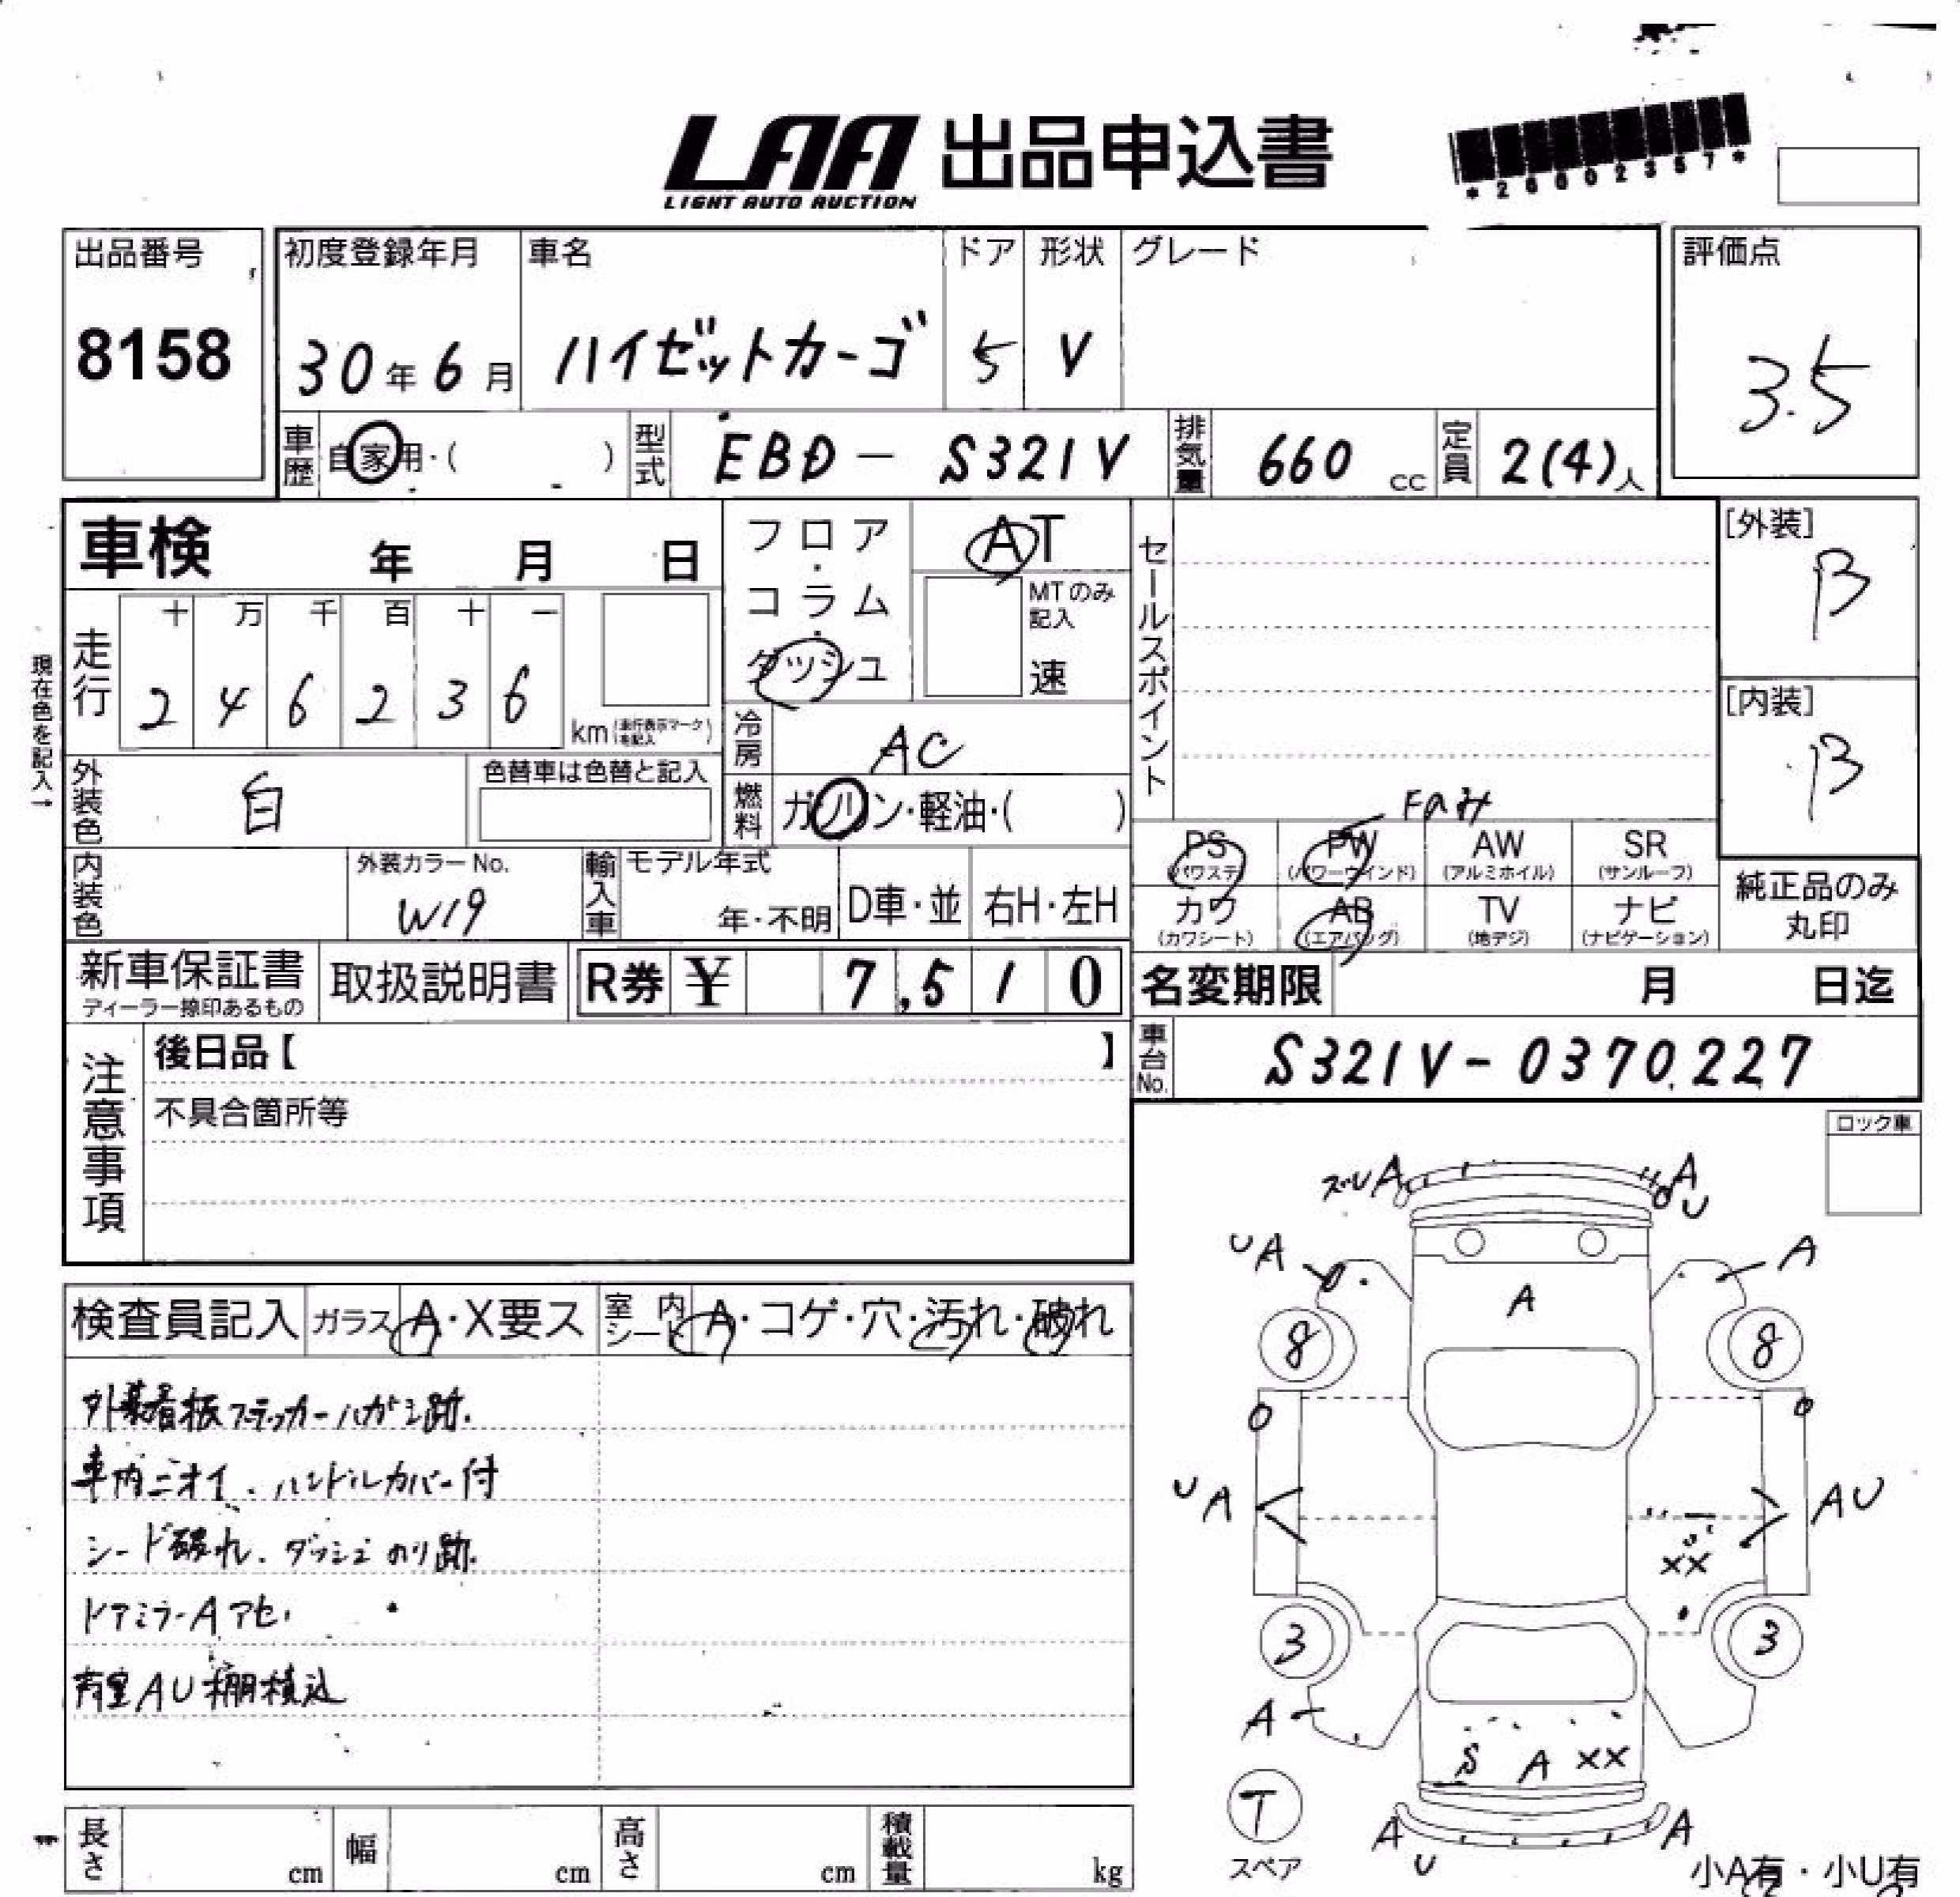 LAA 出品申込書
LIGHT AUTO AUCTION
出品番号 初度登録年月 車名 ドア 形状 グレード 評価点
8158 30年6月 ハイゼットカーゴ 5 V 3.5
車歴 自家用・( ) 型式 EBD-S321V 排気量 660cc 定員 2(4)人
車検 年 月 日
フロア・コラム・ダッシュ
AT
MTのみ記入
速
セールスポイント
[外装]
B
[内装]
B
現在色を記入→
走行 十 万 千 百 十 一
2 4 6 2 3 6 km(走行表示マークを記入)
冷房 AC
外装色 白 色替車は色替と記入
燃料 ガソリン・軽油・( )
Fのみ
PS PW AW SR
(パワステ) (パワーウインド) (アルミホイル) (サンルーフ)
カワ AB TV ナビ
(カワシート) (エアバッグ) (地デジ) (ナビゲーション)
純正品のみ
丸印
内装色 外装カラーNo. W19 輸入車 モデル年式 年・不明 D車・並 右H・左H
新車保証書 取扱説明書 R券 ¥ 7,510
ディーラー捺印あるもの
名変期限 月 日迄
車台No. S321V-0370227
注意事項
後日品【 】
不具合箇所等
ロック車
検査員記入 ガラス A・X要ス 室内シート A・コゲ・穴・汚れ・破れ
外装看板ステッカーハガシ跡.
車内ニオイ.ハンドルカバー付
シート破れ.ダッシュのり跡.
ドアミラーAアセ,
荷室AU棚積込
ズレA A
U
UA A
A
8 8
UA AU
XX
3 3
A
S A XX
T
スペア
A A
U
小A有・小U有
長さ cm 幅 cm 高さ cm 積載量 kg